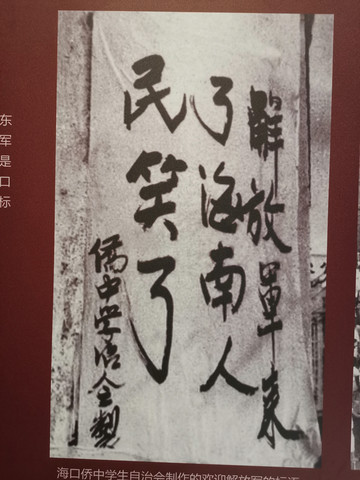 解放軍来
了海南人
民笑了
僑中学治会製
东
军
是
口
标
海口侨中学生自治会制作的欢迎解放军的标语